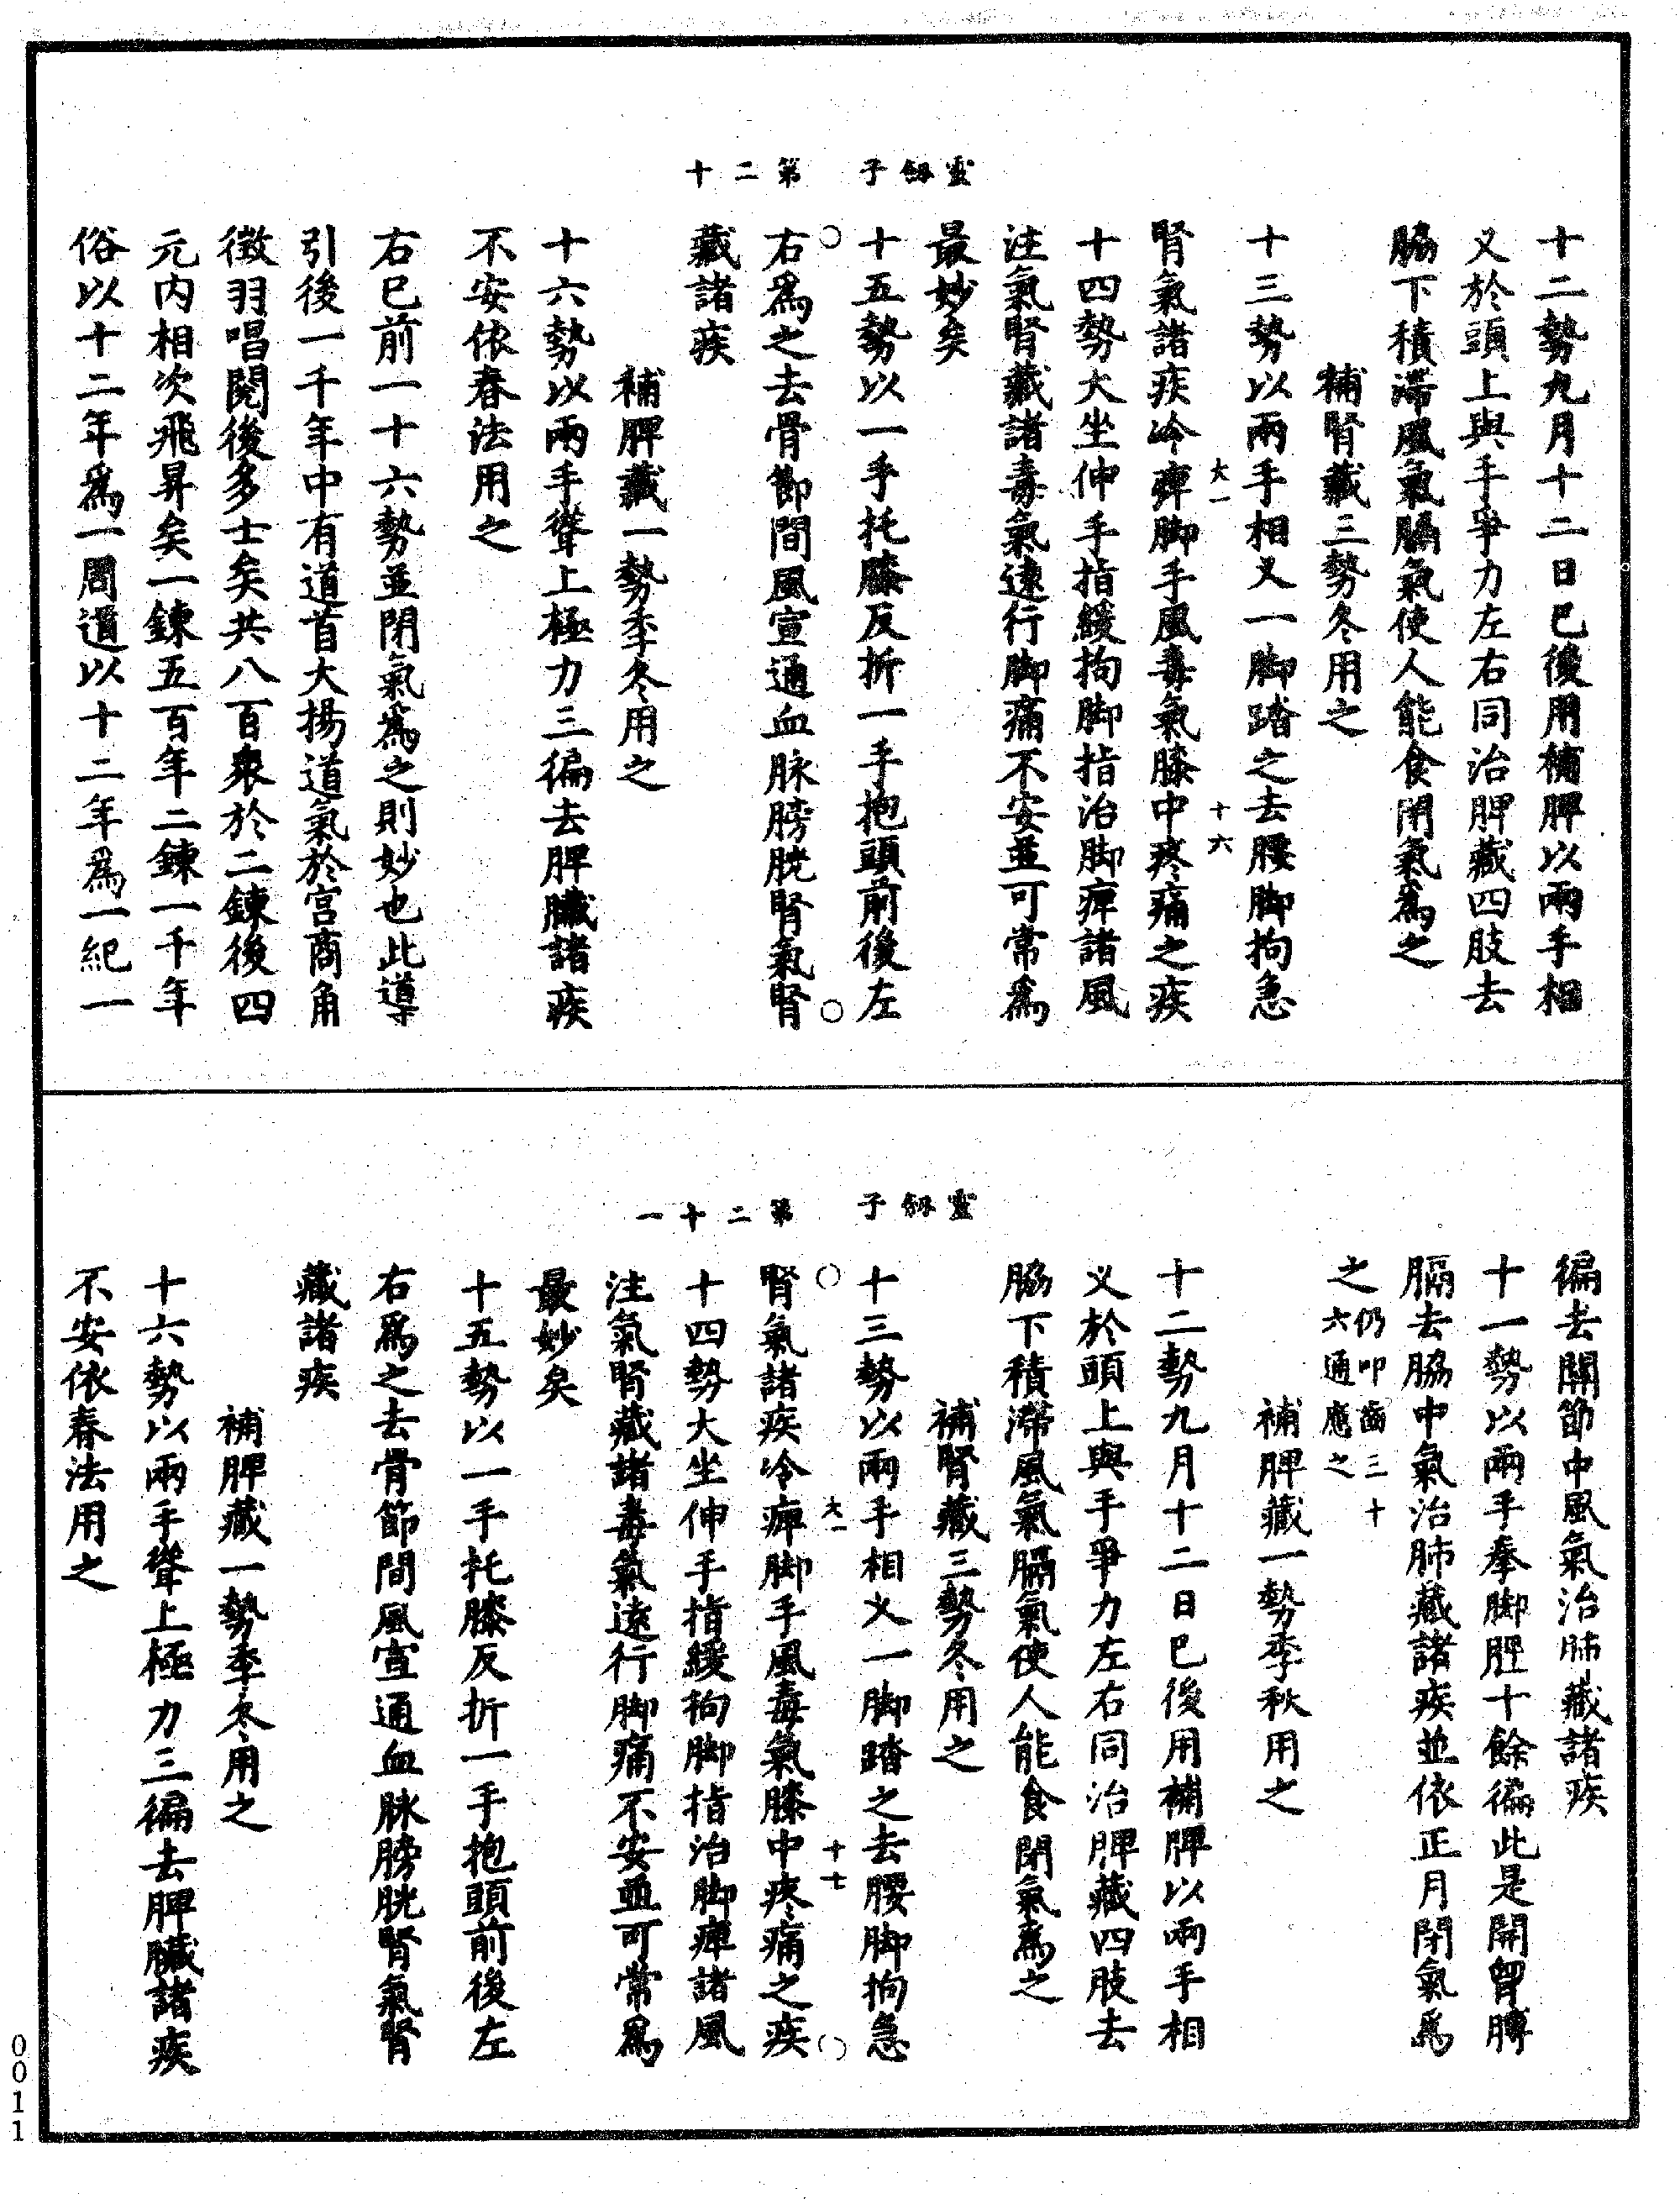 靈劔子　第二十
十二勢九月十二日已後用補脾以兩手相
叉於頭上與手爭力左右同治脾藏四肢去
脇下積滯風氣膈氣使人能食閉氣爲之
補腎藏三勢冬用之
十三勢以兩手相叉一脚踏之去腰脚拘急
大一　十六
腎氣諸疾冷痺脚手風毒氣膝中疼痛之疾
十四勢大坐伸手指緩拘脚指治脚痺諸風
注氣腎藏諸毒氣遠行脚痛不安並可常爲
最妙矣
十五勢以一手托膝反折一手抱頭前後左
右爲之去骨節間風宣通血脉膀胱腎氣腎
藏諸疾
補脾藏一勢季冬用之
十六勢以兩手聳上極力三徧去脾臟諸疾
不安依春法用之
右已前一十六勢並閉氣爲之則妙也此導
引後一千年中有道首大揚道氣於宮商角
徵羽唱閱後多士矣共八百衆於二鍊後四
元內相次飛昇矣一鍊五百年二鍊一千年
俗以十二年爲一周還以十二年爲一紀一
靈劔子　第二十一
徧去關節中風氣治肺藏諸疾
十一勢以兩手拳脚脛十餘徧此是開胷膊
膈去脇中氣治肺藏諸疾並依正月閉氣爲
之仍叩齒三十六通應之
補脾藏一勢季秋用之
十二勢九月十二日已後用補脾以兩手相
叉於頭上與手爭力左右同治脾藏四肢去
脇下積滯風氣膈氣使人能食閉氣爲之
補腎藏三勢冬用之
十三勢以兩手相叉一脚踏之去腰脚拘急
大一　十七
腎氣諸疾冷痺脚手風毒氣膝中疼痛之疾
十四勢大坐伸手指緩拘脚指治脚痺諸風
注氣腎藏諸毒氣遠行脚痛不安並可常爲
最妙矣
十五勢以一手托膝反折一手抱頭前後左
右爲之去骨節間風宣通血脉膀胱腎氣腎
藏諸疾
補脾藏一勢季冬用之
十六勢以兩手聳上極力三徧去脾臟諸疾
不安依春法用之
0011